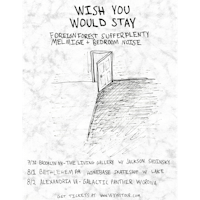 WISH YOU
WOULD STAY
FOREIGN FOREST SUFFER PLENTY
MELRIGE + BEDROOM NOISE
BROOKLYN NY - THE LIVING GALLERY W/ JACKSON
8/1 BETHLEHEM PA - HOMEBASE SKATESHOP W/ LAKE
8/2 ALEXANDRIA VA - GALACTIC PANTHER W/
GET TICKETS AT